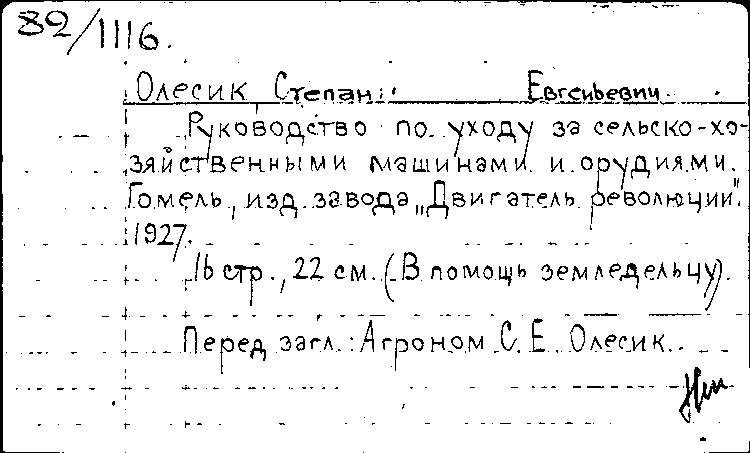 82/1116.
Олесик, Степан Евгеньевич.
Руководство по уходу за сельско-хо-
зяйственными машинами и орудиями.
Гомель, изд. завода „Двигатель революции".
1927.
16 стр., 22 см. (В помощь земледельцу).
Перед загл.: Агроном С. Е. Олесик.